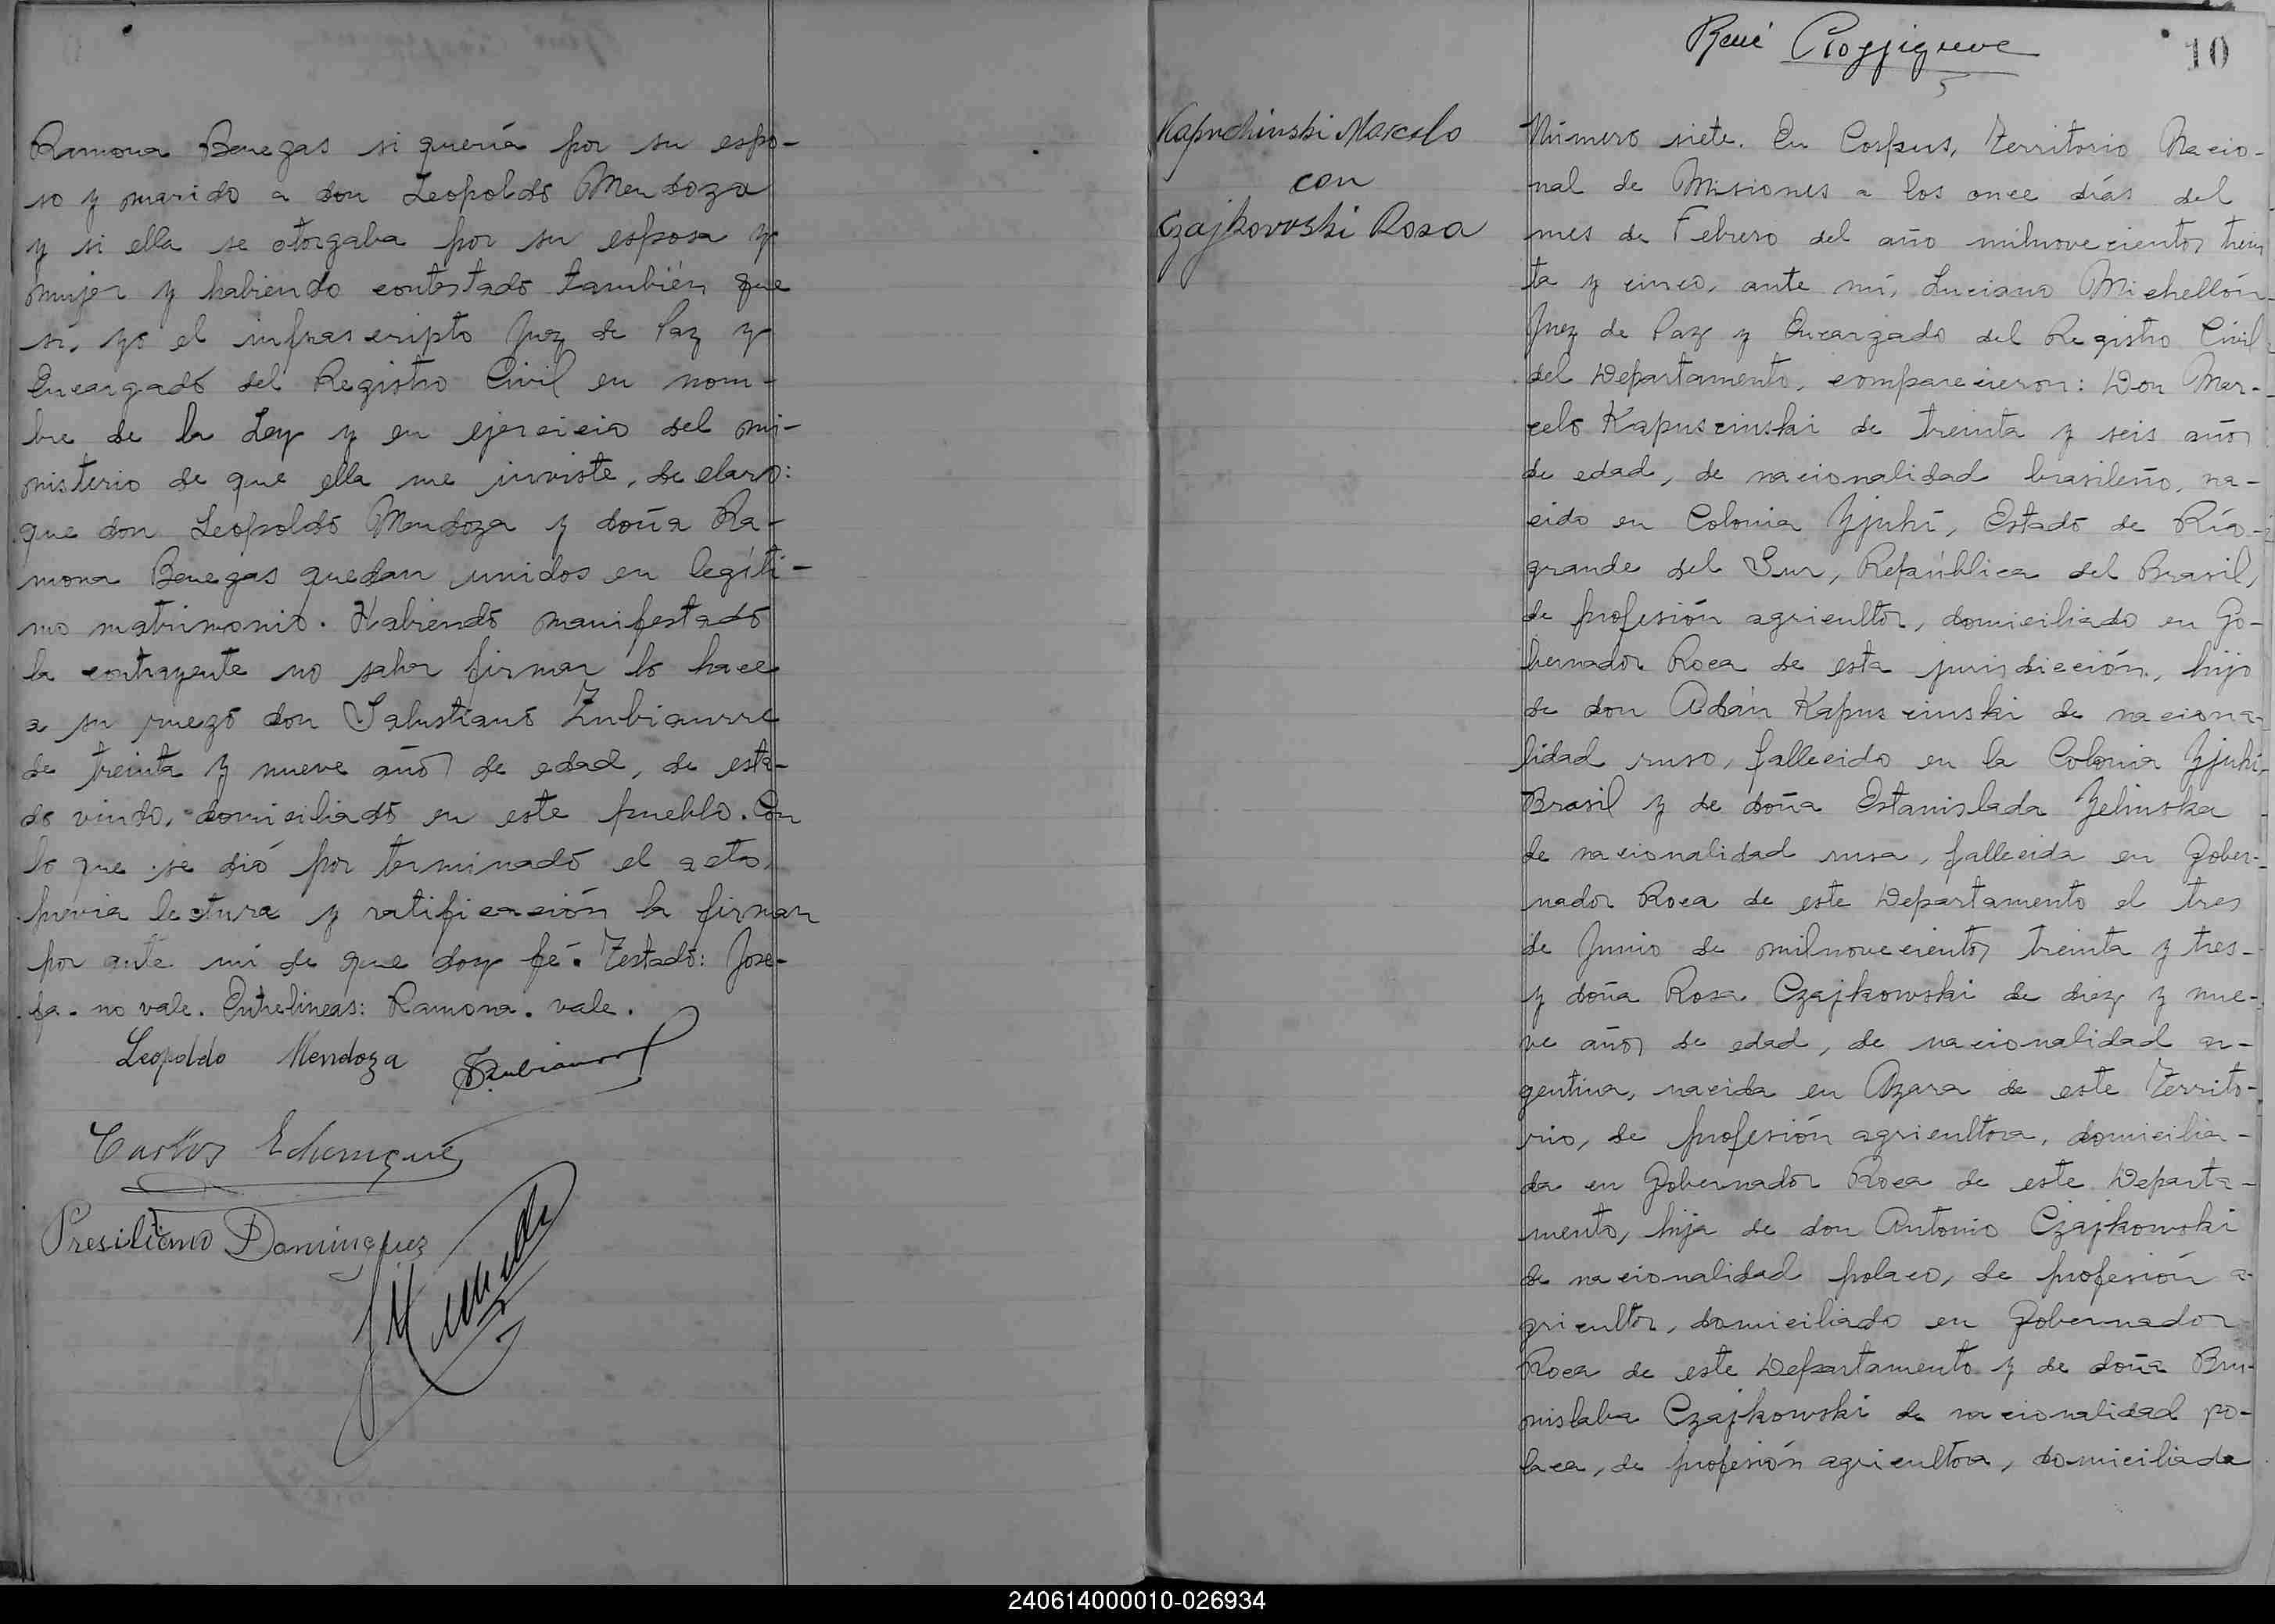 Ramona Benegas si quería por su espo-
so y marido a don Leopoldo Mendoza
y si ella se otorgaba por su esposa y
mujer y habiendo contestado también que
sí, yo el infrascripto Juez de Paz y
Encargado del Registro Civil en nom-
bre de la Ley y en ejercicio del mi-
nisterio de que ella me inviste, declaro:
que don Leopoldo Mendoza y doña Ra-
mona Benegas quedan unidos en legíti-
mo matrimonio. Habiendo manifestado
la contrayente no saber firmar lo hace
a su ruego don Salustiano Zubiaurre
de treinta y nueve años de edad, de esta-
do viudo, domiciliado en este pueblo. Con
lo que se dió por terminado el acto,
previa lectura y ratificación la firman
por ante mi de que doy fé. Testado: Jose-
fa. no vale. Entrelineas: Ramona. vale.
Leopoldo Mendoza SZubiaurre
Carlos Echenique
Presiliano Dominguez
René
10
Kapuchinski Marcelo
con
Czajkovvski Rosa
Número siete. En Corpus, Territorio Nacio-
nal de Misiones a los once días del
mes de Febrero del año milnovecientos trein
ta y cinco, ante mí, Luciano Michellón
Juez de Paz y Encargado del Registro Civil
del Departamento, comparecieron: Don Mar-
celo Kapuscinski de treinta y seis años
de edad, de nacionalidad brasileño, na-
cido en Colonia Yjuhí, Estado de Río-
grande del Sur, República del Brasil,
de profesión agricultor, domiciliado en Go-
bernador Roca de esta jurisdicción, hijo
de don Adán Kapuscinski de naciona-
lidad ruso, fallecido en la Colonia Yjuhi,
Brasil y de doña Estanislada Zelinska
de nacionalidad rusa, fallecida en Gober-
nador Roca de este Departamento el tres
de Junio de milnovecientos treinta y tres-
y doña Rosa Czajkowski de diez y nue-
ve años de edad, de nacionalidad ar-
gentina, nacida en Azara de este Territo-
rio, de profesión agricultora, domicilia-
da en Gobernador Roca de este Departa-
mento, hija de don Antonio Czajkowski
de nacionalidad polaco, de profesión a-
gricultor, domiciliado en Gobernador
Roca de este Departamento y de doña Bru-
nislaba Czajkowski de nacionalidad po-
laca, de profesión agricultora, domiciliada
240614000010-026934